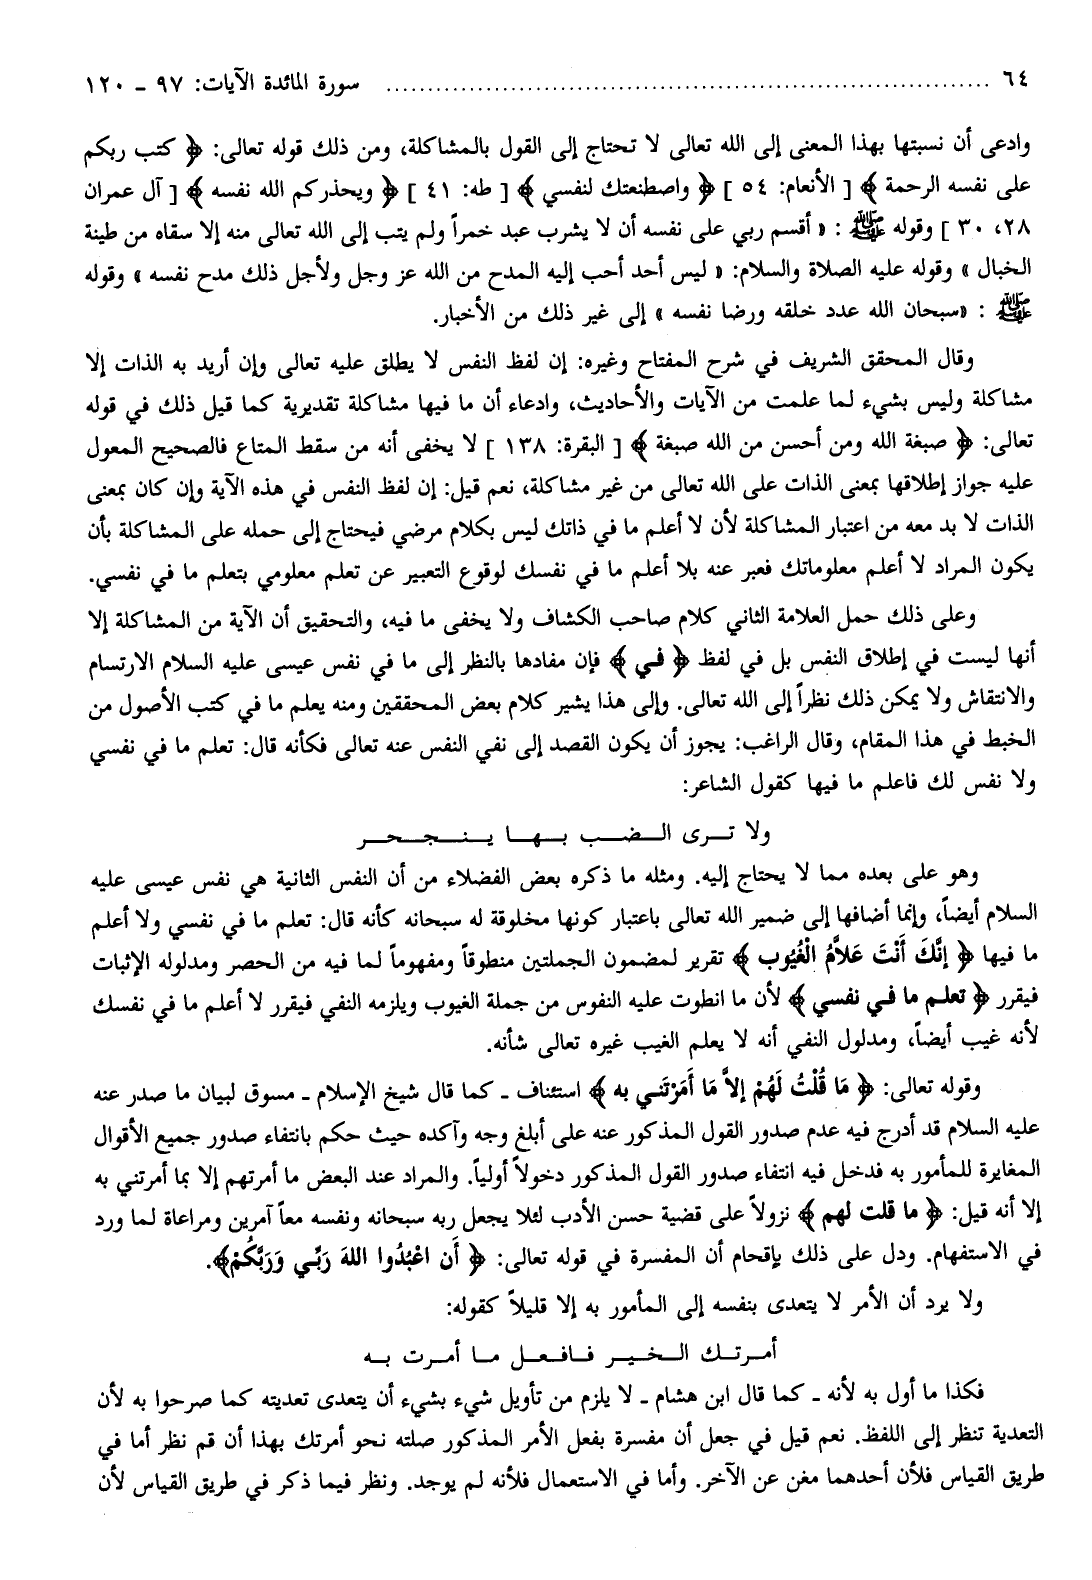 ٦٤ ........................................................................ سورة المائدة الآيات: ٩٧ ـ ١٢٠
وادعى أن نسبتها بهذا المعنى إلى الله تعالى لا تحتاج إلى القول بالمشاكلة، ومن ذلك قوله تعالى: ﴿ كتب ربكم
على نفسه الرحمة ﴾ [ الأنعام: ٥٤ ] ﴿ واصطنعتك لنفسي ﴾ [ طه: ٤١ ] ﴿ ويحذركم الله نفسه ﴾ [ آل عمران
٢٨، ٣٠ ] وقوله ﷺ : « أقسم ربي على نفسه أن لا يشرب عبد خمراً ولم يتب إلى الله تعالى منه إلا سقاه من طينة
الخبال » وقوله عليه الصلاة والسلام: « ليس أحد أحب إليه المدح من الله عز وجل ولأجل ذلك مدح نفسه » وقوله
ﷺ : «سبحان الله عدد خلقه ورضا نفسه » إلى غير ذلك من الأخبار.
وقال المحقق الشريف في شرح المفتاح وغيره: إن لفظ النفس لا يطلق عليه تعالى وإن أريد به الذات إلا
مشاكلة وليس بشيء لما علمت من الآيات والأحاديث، وادعاء أن ما فيها مشاكلة تقديرية كما قيل ذلك في قوله
تعالى: ﴿ صبغة الله ومن أحسن من الله صبغة ﴾ [ البقرة: ١٣٨ ] لا يخفى أنه من سقط المتاع فالصحيح المعول
عليه جواز إطلاقها بمعنى الذات على الله تعالى من غير مشاكلة، نعم قيل: إن لفظ النفس في هذه الآية وإن كان بمعنى
الذات لا بد معه من اعتبار المشاكلة لأن لا أعلم ما في ذاتك ليس بكلام مرضي فيحتاج إلى حمله على المشاكلة بأن
يكون المراد لا أعلم معلوماتك فعبر عنه بلا أعلم ما في نفسك لوقوع التعبير عن تعلم معلومي بتعلم ما في نفسي.
وعلى ذلك حمل العلامة الثاني كلام صاحب الكشاف ولا يخفى ما فيه، والتحقيق أن الآية من المشاكلة إلا
أنها ليست في إطلاق النفس بل في لفظ ﴿ في ﴾ فإن مفادها بالنظر إلى ما في نفس عيسى عليه السلام الارتسام
والانتقاش ولا يمكن ذلك نظراً إلى الله تعالى. وإلى هذا يشير كلام بعض المحققين ومنه يعلم ما في كتب الأصول من
الخبط في هذا المقام، وقال الراغب: يجوز أن يكون القصد إلى نفي النفس عنه تعالى فكأنه قال: تعلم ما في نفسي
ولا نفس لك فاعلم ما فيها كقول الشاعر:
ولا تـــرى الـضـب بـهـا يـنـجـحـر
وهو على بعده مما لا يحتاج إليه. ومثله ما ذكره بعض الفضلاء من أن النفس الثانية هي نفس عيسى عليه
السلام أيضاً، وإنما أضافها إلى ضمير الله تعالى باعتبار كونها مخلوقة له سبحانه كأنه قال: تعلم ما في نفسي ولا أعلم
ما فيها ﴿ إنَّكَ أَنْتَ عَلاَّمُ الْغُيُوب ﴾ تقرير لمضمون الجملتين منطوقاً ومفهوماً لما فيه من الحصر ومدلوله الإثبات
فيقرر ﴿ تعلم ما في نفسي ﴾ لأن ما انطوت عليه النفوس من جملة الغيوب ويلزمه النفي فيقرر لا أعلم ما في نفسك
لأنه غيب أيضاً، ومدلول النفي أنه لا يعلم الغيب غيره تعالى شأنه.
وقوله تعالى: ﴿ مَا قُلْتُ لَهُمْ إلاَّ مَا أَمَرْتَني به ﴾ استئناف ـ كما قال شيخ الإسلام ـ مسوق لبيان ما صدر عنه
عليه السلام قد أدرج فيه عدم صدور القول المذكور عنه على أبلغ وجه وآكده حيث حكم بانتفاء صدور جميع الأقوال
المغايرة للمأمور به فدخل فيه انتفاء صدور القول المذكور دخولاً أولياً. والمراد عند البعض ما أمرتهم إلا بما أمرتني به
إلا أنه قيل: ﴿ ما قلت لهم ﴾ نزولاً على قضية حسن الأدب لئلا يجعل ربه سبحانه ونفسه معاً آمرين ومراعاة لما ورد
في الاستفهام. ودل على ذلك بإقحام أن المفسرة في قوله تعالى: ﴿ أَن اعْبُدُوا اللهَ رَبِّي وَرَبَّكُمْ﴾.
ولا يرد أن الأمر لا يتعدى بنفسه إلى المأمور به إلا قليلاً كقوله:
أمـرتـك الـخـيـر فـافـعـل مـا أمـرت بـه
فكذا ما أول به لأنه ـ كما قال ابن هشام ـ لا يلزم من تأويل شيء بشيء أن يتعدى تعديته كما صرحوا به لأن
التعدية تنظر إلى اللفظ. نعم قيل في جعل أن مفسرة بفعل الأمر المذكور صلته نحو أمرتك بهذا أن قم نظر أما في
طريق القياس فلأن أحدهما مغن عن الآخر. وأما في الاستعمال فلأنه لم يوجد. ونظر فيما ذكر في طريق القياس لأن